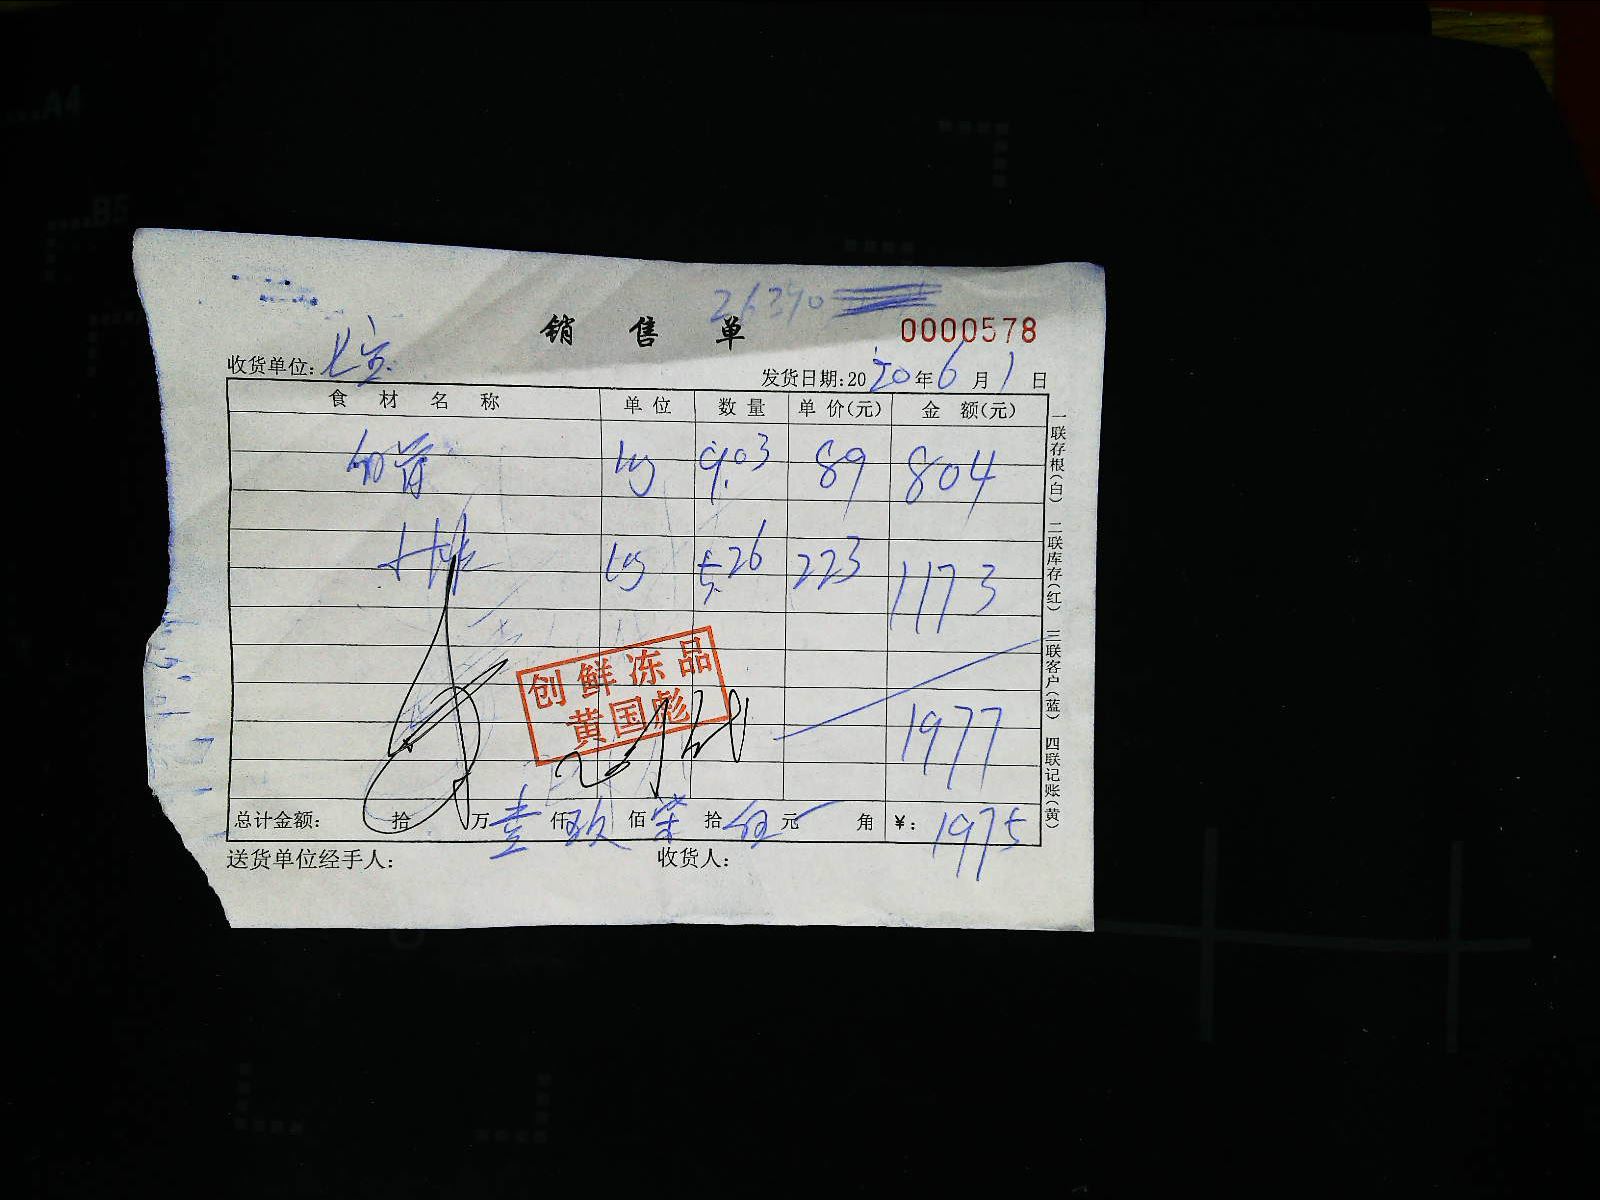 A4
B5
26390
销 售 单
0000578
收货单位:
发货日期:2020年6月1日
食 材 名 称 单 位 数 量 单 价(元) 金 额(元)
kg 9.03 89 804
kg 5.26 223 1173
创鲜冻品
黄国彪
1977
总计金额: 拾 万 壹 仟 玖 佰 柒 拾 伍 元 角 ¥: 1975
送货单位经手人: 收货人:
一联存根(白) 二联库存(红) 三联客户(蓝) 四联记账(黄)